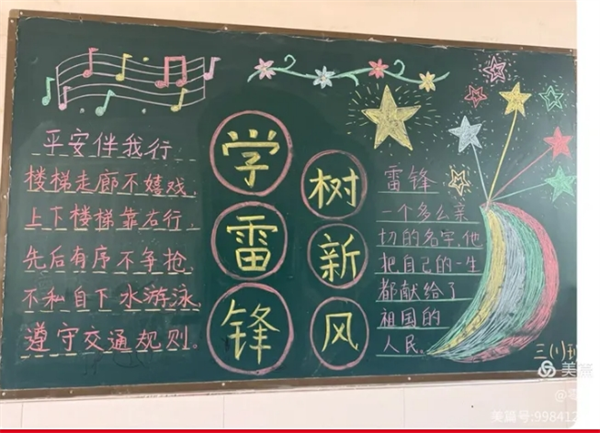 平安伴我行
楼梯走廊不嬉戏
上下楼梯靠右行,
先后有序不争抢,
不私自下水游泳,
遵守交通规则.
学
雷
锋
树
新
风
雷锋
一个多么亲
切的名字,他
把自己的一生
都献给了
祖国的
人民.
三(1)班
美篇
美篇号:998412